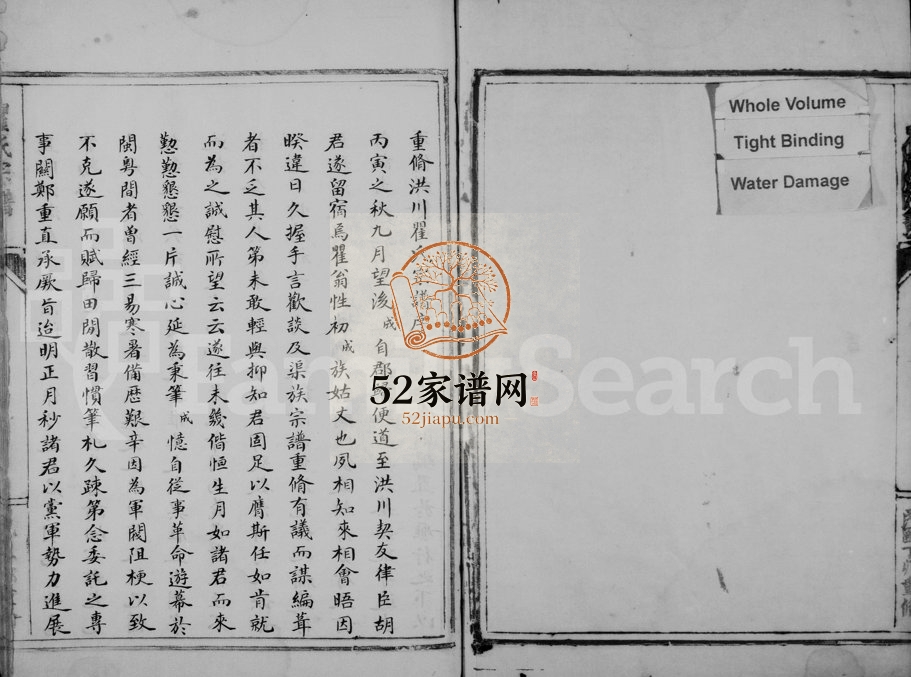 重脩洪川瞿氏宗譜序
丙寅之秋九月望後成自郡便道至洪川契友律臣胡
君遂留宿焉瞿翁性初成族姑丈也夙相知來相會晤因
暌違日久握手言歡談及渠族宗譜重脩有議而謀編葺
者不乏其人第未敢輕與抑知君固足以膺斯任如肯就
而為之誠慰所望云云遂往未幾偕恒生月如諸君而來
懃懃懇懇一片誠心延為秉筆成憶自從事革命遊幕於
閩粵間者曾經三易寒暑備歷艱辛因為軍閥阻梗以致
不克遂願而賦歸田閒散習慣筆札久疎第念委託之專
事關鄭重直承厥旨迨明正月杪諸君以黨軍勢力進展
Whole Volume
Tight Binding
Water Damage
FamilySearch
52家谱网
52jiapu.com